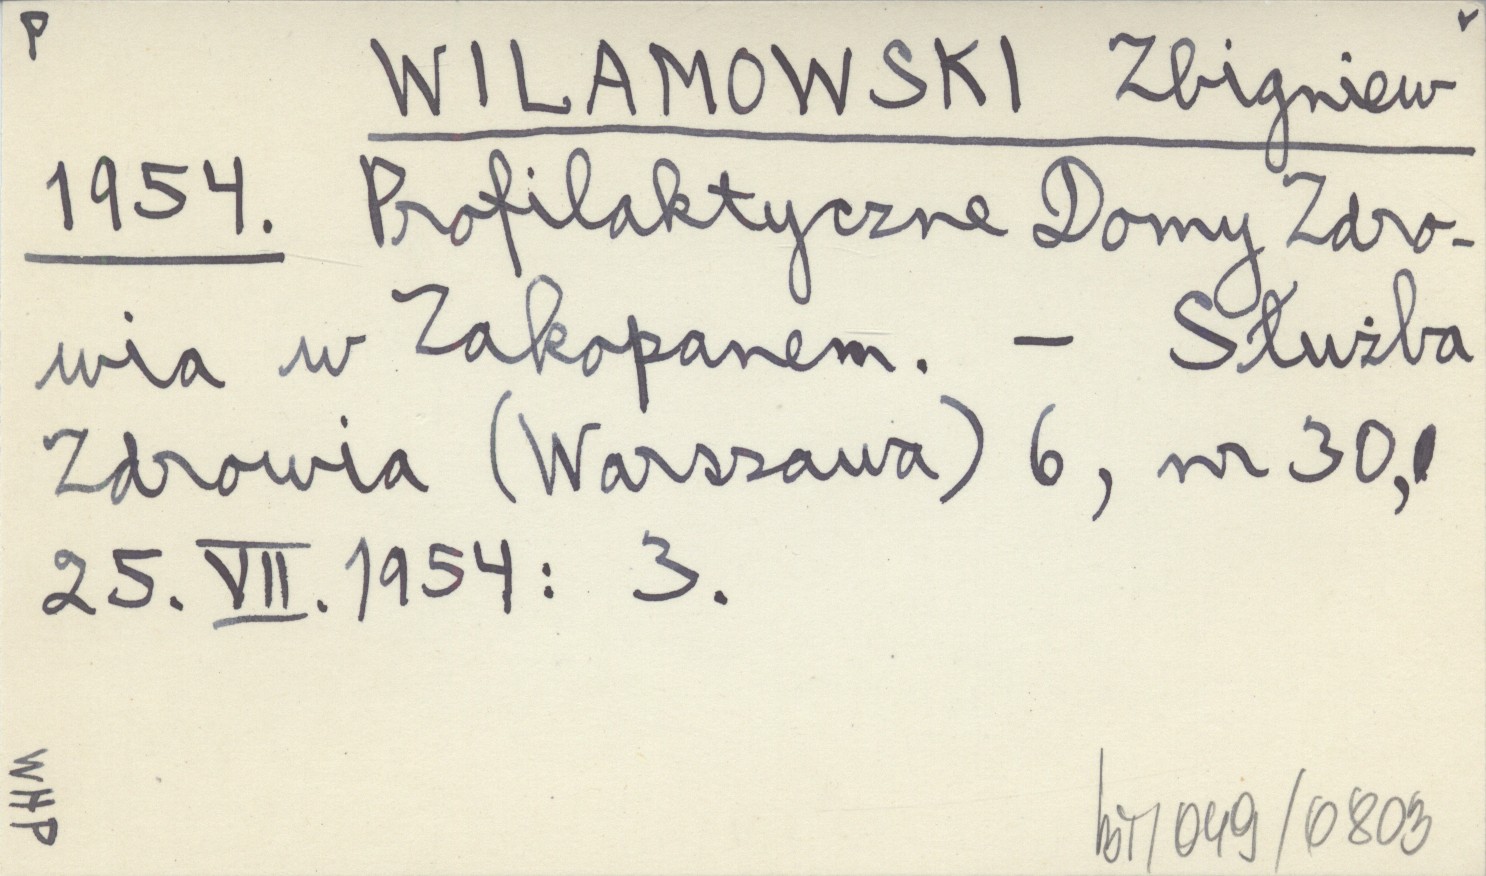 P
v
WILAMOWSKI Zbigniew
1954. Profilaktyczne Domy Zdro-
wia w Zakopanem. – Służba
Zdrowia (Warszawa) 6, nr 30,
25.VII.1954: 3.
WHP
/049/0803